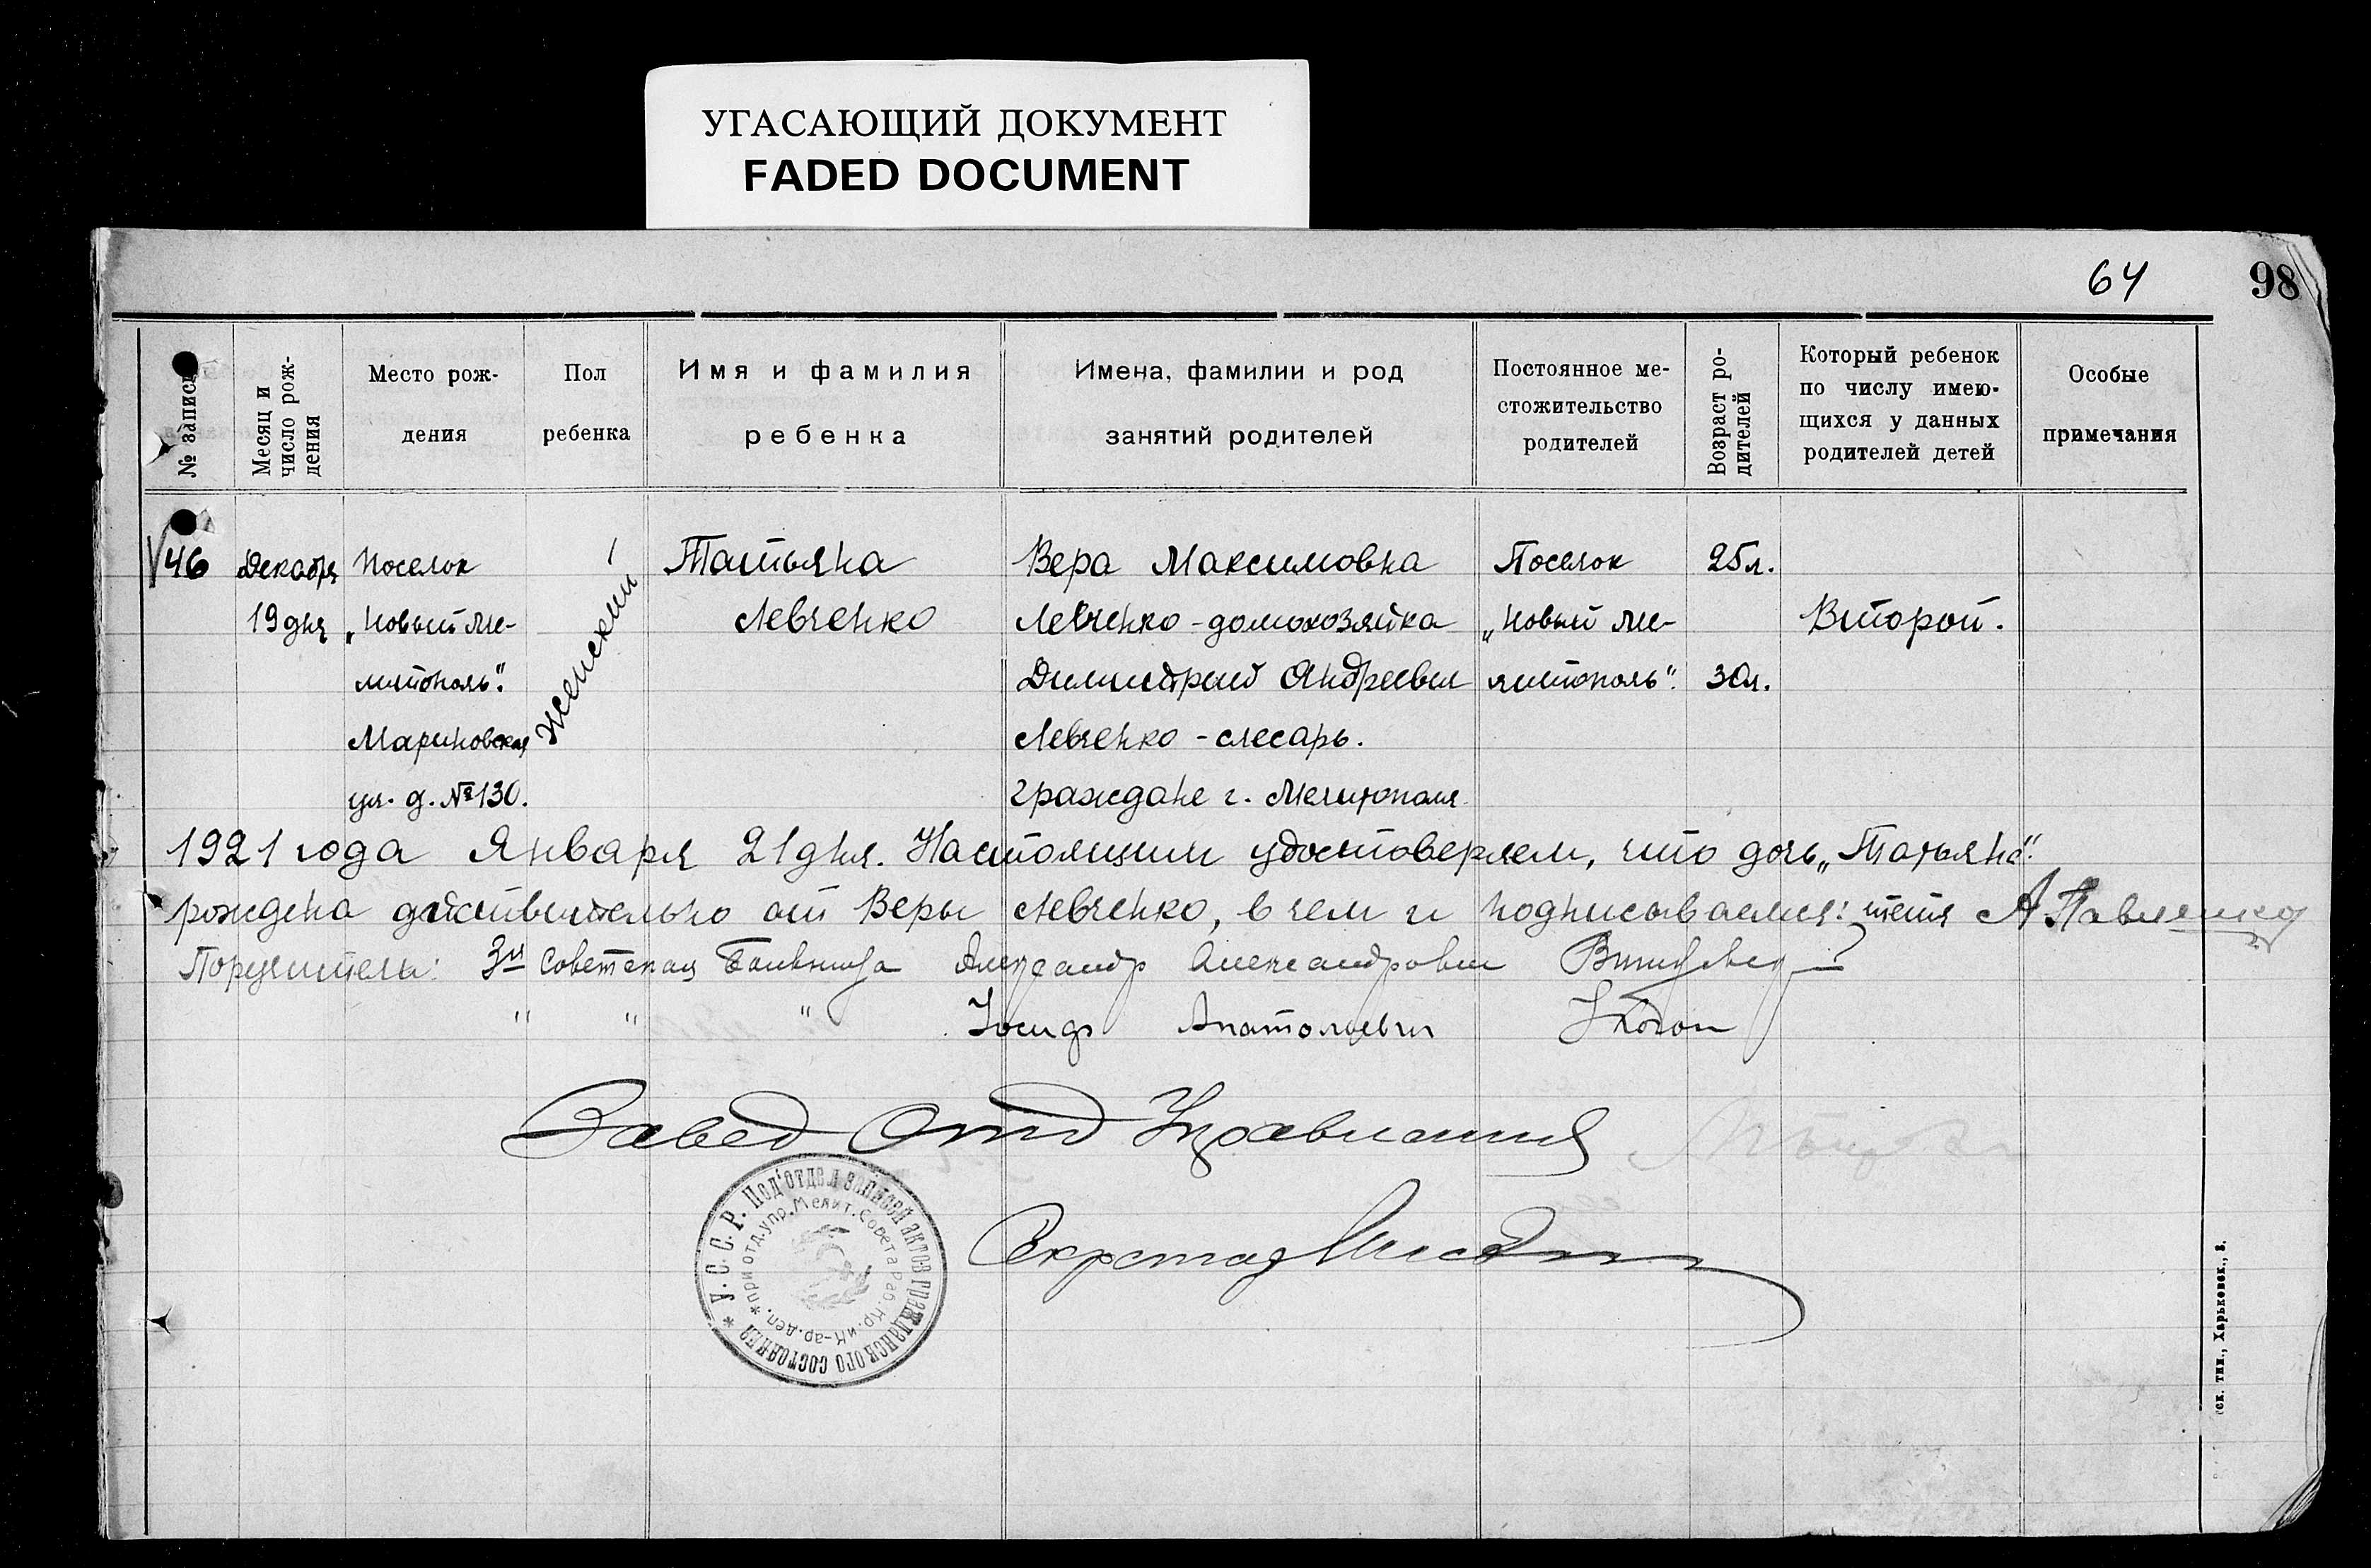 УГАСАЮЩИЙ ДОКУМЕНТ
FADED DOCUMENT
64 98
№ записи
Месяц и число рож-
дения
Место рож-
дения
Пол
ребенка
Имя и фамилия
ребенка
Имена, фамилии и род
занятий родителей
Постоянное ме-
стожительство
родителей
Возраст ро-
дителей
Который ребенок
по числу имею-
щихся у данных
родителей детей
Особые
примечания
46
Декабря
19 дня
Поселок
„Новый Ме-
литополь".
Мариновская
ул. д. №130.
Женский
Татьяна
Левченко
Вера Максимовна
Левченко - домохозяйка
Димитрий Андреевич
Левченко - слесарь.
граждане г. Мелитополя
Поселок
„Новый Ме-
литополь".
25 л.
30 л.
Второй.
1921 года Января 21 дня. Настоящим удостоверяем, что дочь „Татьяна".
рождена действительно от Веры Левченко, в чем и подписываемся: тетя А Павленко
Поручители: 3я Советская Больница Александр Александрович
" " " Иосиф Анатольевич Коган
Завед Отд Управления
Секретарь
* У.С.С.Р. Под'отдел записей актов гражданского состояния
* при отд. упр. Мелит. Совета Раб. Кр. и К-ар. деп.
ск. тип., Харьковск., 3.